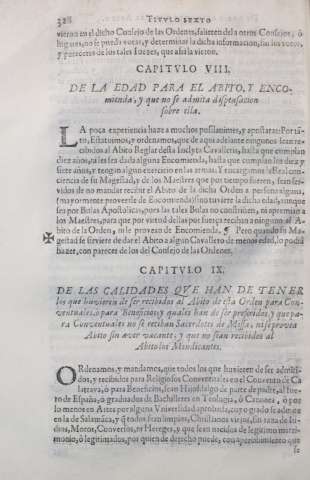 328 TITVLO SEXTO
vieron en el dicho Consejo de las Ordenes, salieren de la otros Consejos, ò
se puedā votar, y determinar la dicha informacion, sin los votos,
y pareceres de los tales Iuezes, que assi la vieron.
CAPITVLO VIII.
DE LA EDAD PARA EL ABITO, Y ENCO-
mienda, y que no se admita dispensacion
sobre ella.
LA poca experiencia haze a muchos posilanimes, y apostatar: Por tā-
to, Estatuimos, y ordenamos, que de aqui adelante ningunos sean re-
cibidos al Abito Reglar desta Inclyta Cavalleria, hasta que cumplan
diez años, ni les sea dada alguna Encomienda, hasta que cumplan los diez y
siete años, y tengan algun exercicio en las armas: Y encargamos la Real con-
ciencia de su Magestad, y de los Maestres que por tiempo fueren, sean ser-
vidos de no mandar recibir el Abito de la dicha Orden a persona alguna,
(mayormente proveerle de Encomienda) sino tuviere la dicha edad, aunque
sea por Bulas Apostolicas, pues las tales Bulas no constriñen, ni apremian a
los Maestres, para que por virtud dellas por fuerça reciban a ninguno al A-
bito de la Orden, ni le provean de Encomienda. ¶ Pero quando su Ma-
gestad se sirviere de dar el Abito a algun Cavallero de menos edad, lo podrà
hazer, con parecer de los del Consejo de las Ordenes.
CAPITVLO IX.
DE LAS CALIDADES QVE HAN DE TENER
los que huvieren de ser recibidos al Abito de esta Orden para Con-
ventuales, ò para Beneficios; y quales han de ser preferidos, y que pa-
ra Conventuales no se reciban Sacerdotes de Missa, ni se provea
Abito sin aver vacante, y que no sean recibidos al
Abito los Mendicantes.
ORdenamos, y mandamos, que todos los que huvieren de ser admiti-
dos, y recibidos para Religiosos Conventuales en el Convento de Ca-
latrava, ò para Beneficios, sean Hijosdalgo de parte de padre, al fue-
ro de España, ò graduados de Bachilleres en Teulogia, ò Canones, ò por
lo menos en Artes por alguna Vniversidad aprobada, cuyo grado se admite
en la de Salamāca, y q̄ todos sean limpios, Christianos viejos, sin raza de Iu-
dios, Moros, Conversos, ni Hereges, y que sean nacidos de legitimo matri-
monio, ò legitimados, por quien de derecho puede, con apercibimiento que
se